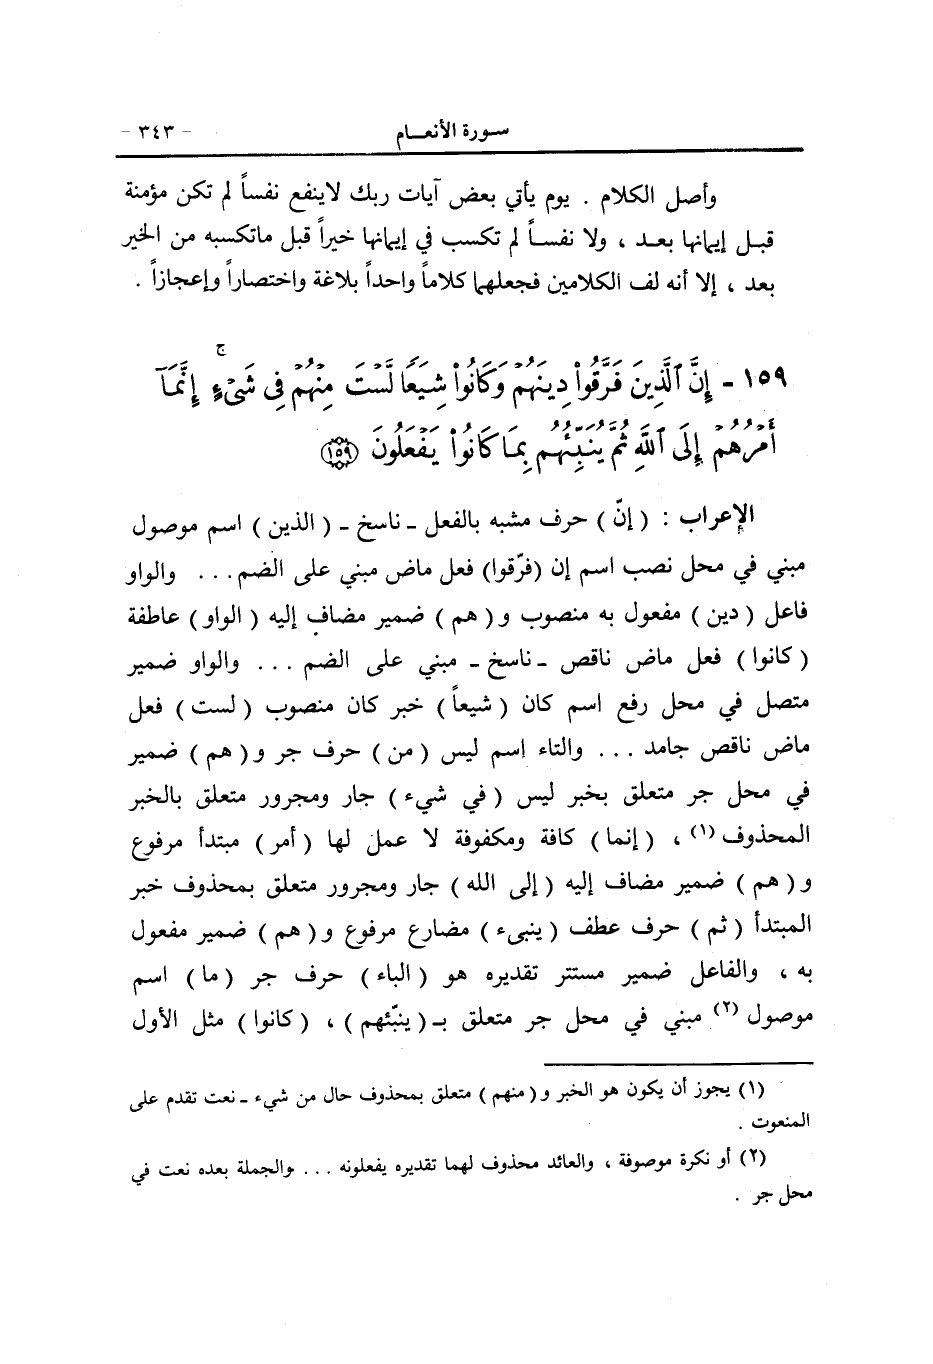 سورة الأنعام - ٣٤٣ -
وأصل الكلام . يوم يأتي بعض آيات ربك لاينفع نفساً لم تكن مؤمنة
قبل إيمانها بعد ، ولا نفساً لم تكسب في إيمانها خيراً قبل ماتكسبه من الخير
بعد ، إلا أنه لف الكلامين فجعلهما كلاماً واحداً بلاغة واختصاراً وإعجازاً .
١٥٩ - إِنَّ ٱلَّذِينَ فَرَّقُوا۟ دِينَهُمْ وَكَانُوا۟ شِيَعًا لَّسْتَ مِنْهُمْ فِى شَىْءٍ ۚ إِنَّمَآ
أَمْرُهُمْ إِلَى ٱللَّهِ ثُمَّ يُنَبِّئُهُم بِمَا كَانُوا۟ يَفْعَلُونَ ﴿١٥٩﴾
الإعراب : ( إنّ ) حرف مشبه بالفعل ـ ناسخ ـ ( الذين ) اسم موصول
مبني في محل نصب اسم إن (فرّقوا) فعل ماض مبني على الضم ... والواو
فاعل ( دين ) مفعول به منصوب و( هم ) ضمير مضاف إليه ( الواو ) عاطفة
( كانوا ) فعل ماض ناقص ـ ناسخ ـ مبني على الضم ... والواو ضمير
متصل في محل رفع اسم كان ( شيعاً ) خبر كان منصوب ( لست ) فعل
ماض ناقص جامد ... والتاء اسم ليس ( من ) حرف جر و( هم ) ضمير
في محل جر متعلق بخبر ليس ( في شيء ) جار ومجرور متعلق بالخبر
المحذوف (١) ، ( إنما ) كافة ومكفوفة لا عمل لها ( أمر ) مبتدأ مرفوع
و( هم ) ضمير مضاف إليه ( إلى الله ) جار ومجرور متعلق بمحذوف خبر
المبتدأ ( ثم ) حرف عطف ( ينبىء ) مضارع مرفوع و( هم ) ضمير مفعول
به ، والفاعل ضمير مستتر تقديره هو ( الباء ) حرف جر ( ما ) اسم
موصول (٢) مبني في محل جر متعلق بـ ( ينبّئهم ) ، ( كانوا ) مثل الأول
(١) يجوز أن يكون هو الخبر و( منهم ) متعلق بمحذوف حال من شيء ـ نعت تقدم على
المنعوت .
(٢) أو نكرة موصوفة ، والعائد محذوف لهما تقديره يفعلونه ... والجملة بعده نعت في
محل جر .